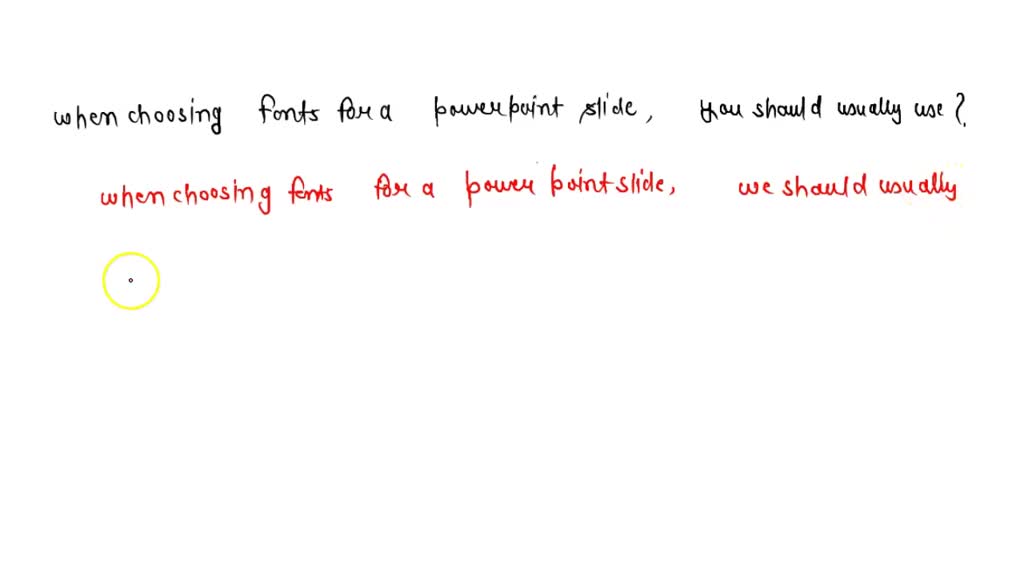 when choosing fonts for a powerpoint slide, you should usually use?
when choosing fonts for a power point slide, we should usually